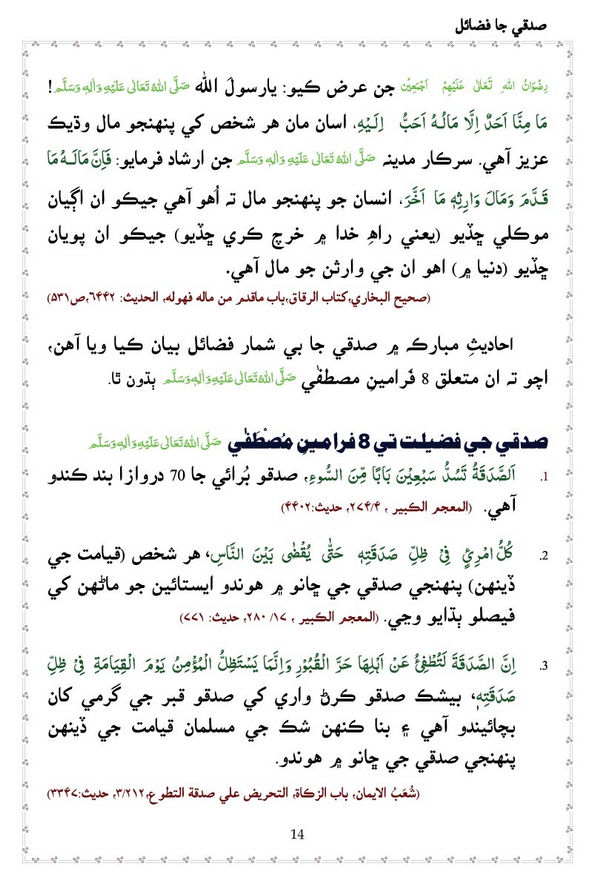 صدقي جا فضائل
رِضْوَانُ اللهِ تَعَالٰی عَلَيْهِمْ اَجْمَعِيْن جن عرض ڪيو: يارسولَ الله صَلَّی اللهُ تَعَالٰی عَلَيْهِ وَاٰلِهٖ وَسَلَّم!
مَا مِنَّا اَحَدٌ اِلَّا مَالُهُ اَحَبُّ اِلَيْهِ، اسان مان هر شخص کي پنهنجو مال وڌيڪ
عزيز آهي. سرڪار مدينہ صَلَّی اللهُ تَعَالٰی عَلَيْهِ وَاٰلِهٖ وَسَلَّم جن ارشاد فرمايو: فَاِنَّ مَالَـهُ مَا
قَـدَّمَ وَمَالَ وَارِثِهٖ مَا اَخَّرَ، انسان جو پنهنجو مال تہ اُهو آهي جيڪو ان اڳيان
موڪلي ڇڏيو (يعني راہِ خدا ۾ خرچ ڪري ڇڏيو) جيڪو ان پويان
ڇڏيو (دنيا ۾) اهو ان جي وارثن جو مال آهي.
(صحيح البخاري،ڪتاب الرقاق،باب ماقدم من ماله فهوله، الحديث: ۶۴۴۲،ص۵۳۱)
احاديثِ مبارڪہ ۾ صدقي جا بي شمار فضائل بيان ڪيا ويا آهن،
اچو تہ ان متعلق 8 فَرامينِ مصطفٰي صَلَّی اللهُ تَعَالٰی عَلَيْهِ وَاٰلِهٖ وَسَلَّم ٻڌون ٿا.
صدقي جي فضيلت تي 8 فرامينِ مُصْطَفٰي صَلَّی اللهُ تَعَالٰی عَلَيْهِ وَاٰلِهٖ وَسَلَّم
1. اَلصَّدَقَةُ تَسُدُّ سَبْعِيْنَ بَابًا مِّنَ السُّوءِ، صدقو بُرائي جا 70 دروازا بند ڪندو
آهي. (المعجم الکبير ، ۲۷۴/۴، حديث:۴۴۰۲)
2. كُلُّ امْرِئٍ فِیْ ظِلِّ صَدَقَتِهٖ حَتّٰی يُقْضٰی بَيْنَ النَّاسِ، هر شخص (قيامت جي
ڏينهن) پنهنجي صدقي جي ڇانو ۾ هوندو ايستائين جو ماڻهن کي
فيصلو ٻڌايو وڃي. (المعجم الکبير ، ۱۷/ ۲۸۰، حديث: ۷۷۱)
3. اِنَّ الصَّدَقَةَ لَتُطْفِئُ عَنْ اَهْلِهَا حَرَّ الْقُبُوْرِ وَاِنَّمَا يَسْتَظِلُّ الْمُؤْمِنُ يَوْمَ الْقِيَامَةِ فِیْ ظِلِّ
صَدَقَتِهٖ، بيشڪ صدقو ڪرڻ واري کي صدقو قبر جي گرمي کان
بچائيندو آهي ۽ بنا ڪنهن شڪ جي مسلمان قيامت جي ڏينهن
پنهنجي صدقي جي ڇانو ۾ هوندو.
(شُعَبُ الايمان، باب الزكاة، التحريض علي صدقة التطوع،۳/۲۱۲، حديث:۳۳۴۷)
14